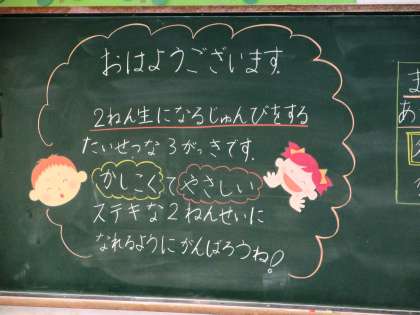 おはようございます
2ねん生になるじゅんびをする
たいせつな3がっきです.
かしこくてやさしい
ステキな2ねんせいに
なれるようにがんばろうね!
ま
あ